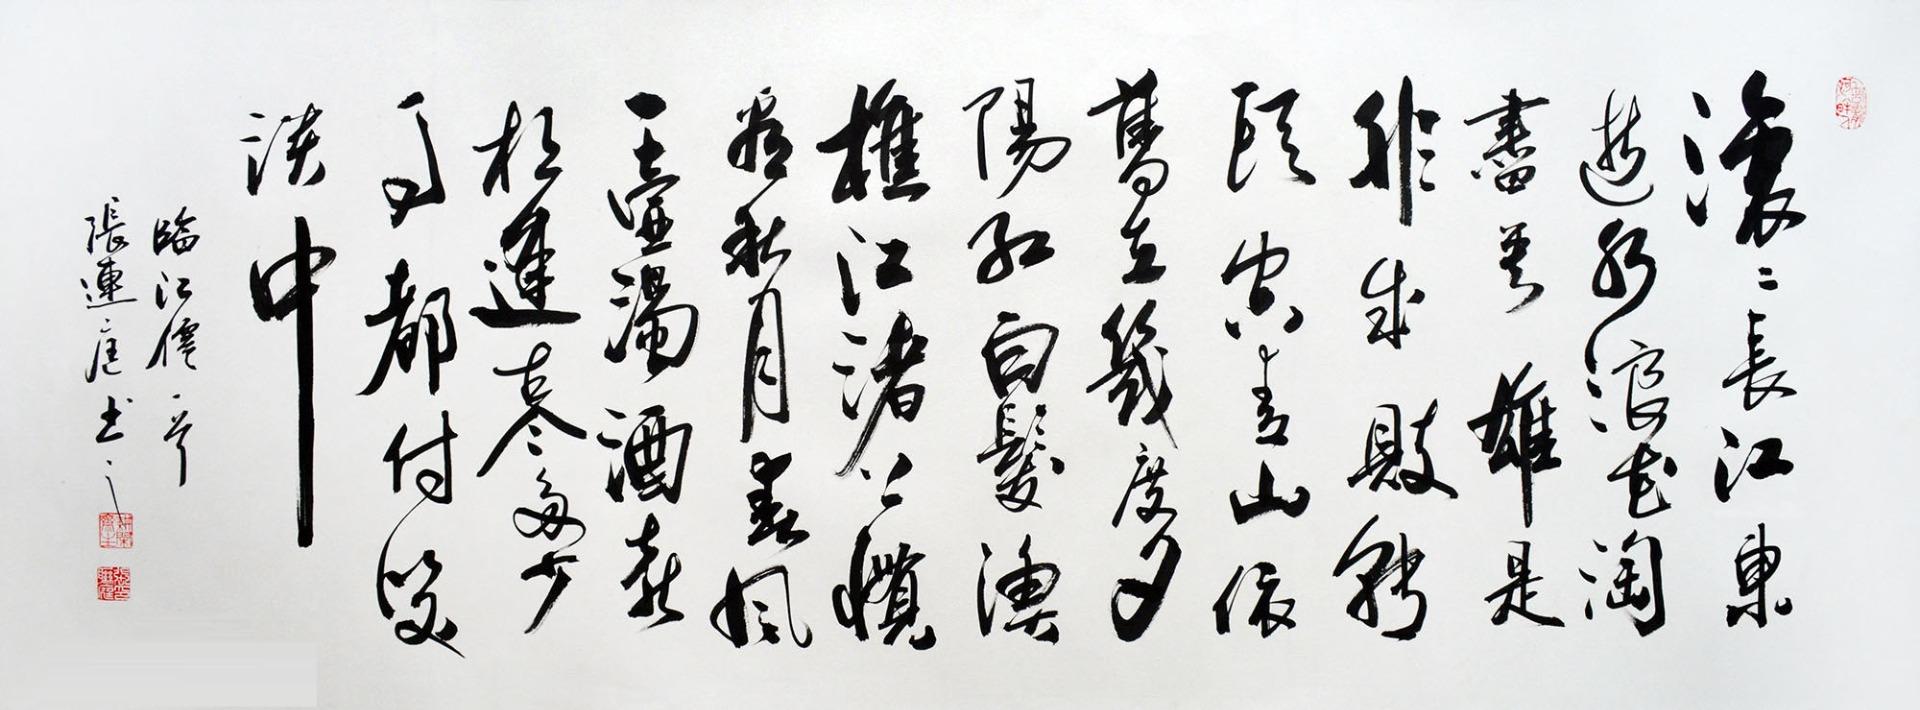 滾〻長江東
逝水浪花淘
盡英雄是
非成敗轉
頭空青山依
舊在幾度夕
陽紅白髮漁
樵江渚上慣
看秋月春風
一壺濁酒喜
相逢古今多少
事都付笑
談中
臨江僊一首
張連庭书之